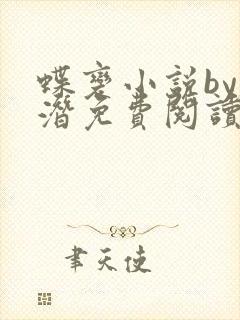 蝶变小说by
潜免費閱讀
聿天使